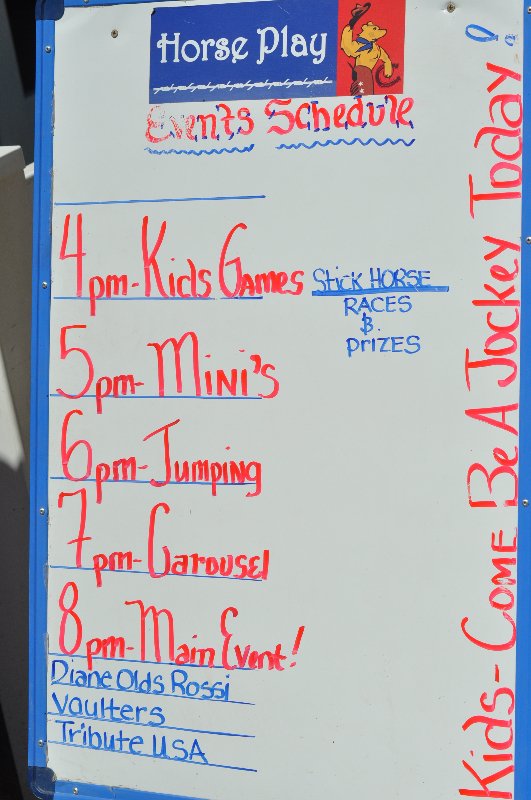 Horse Play
Events Schedule
4pm-Kids Games
Stick HORSE
RACES
&.
PRIZES
5pm-MINI'S
6pm-Jumping
7pm-Carousel
8pm-Main Event!
Diane Olds Rossi
Vaulters
Tribute USA
Kids-COME Be A Jockey Today!